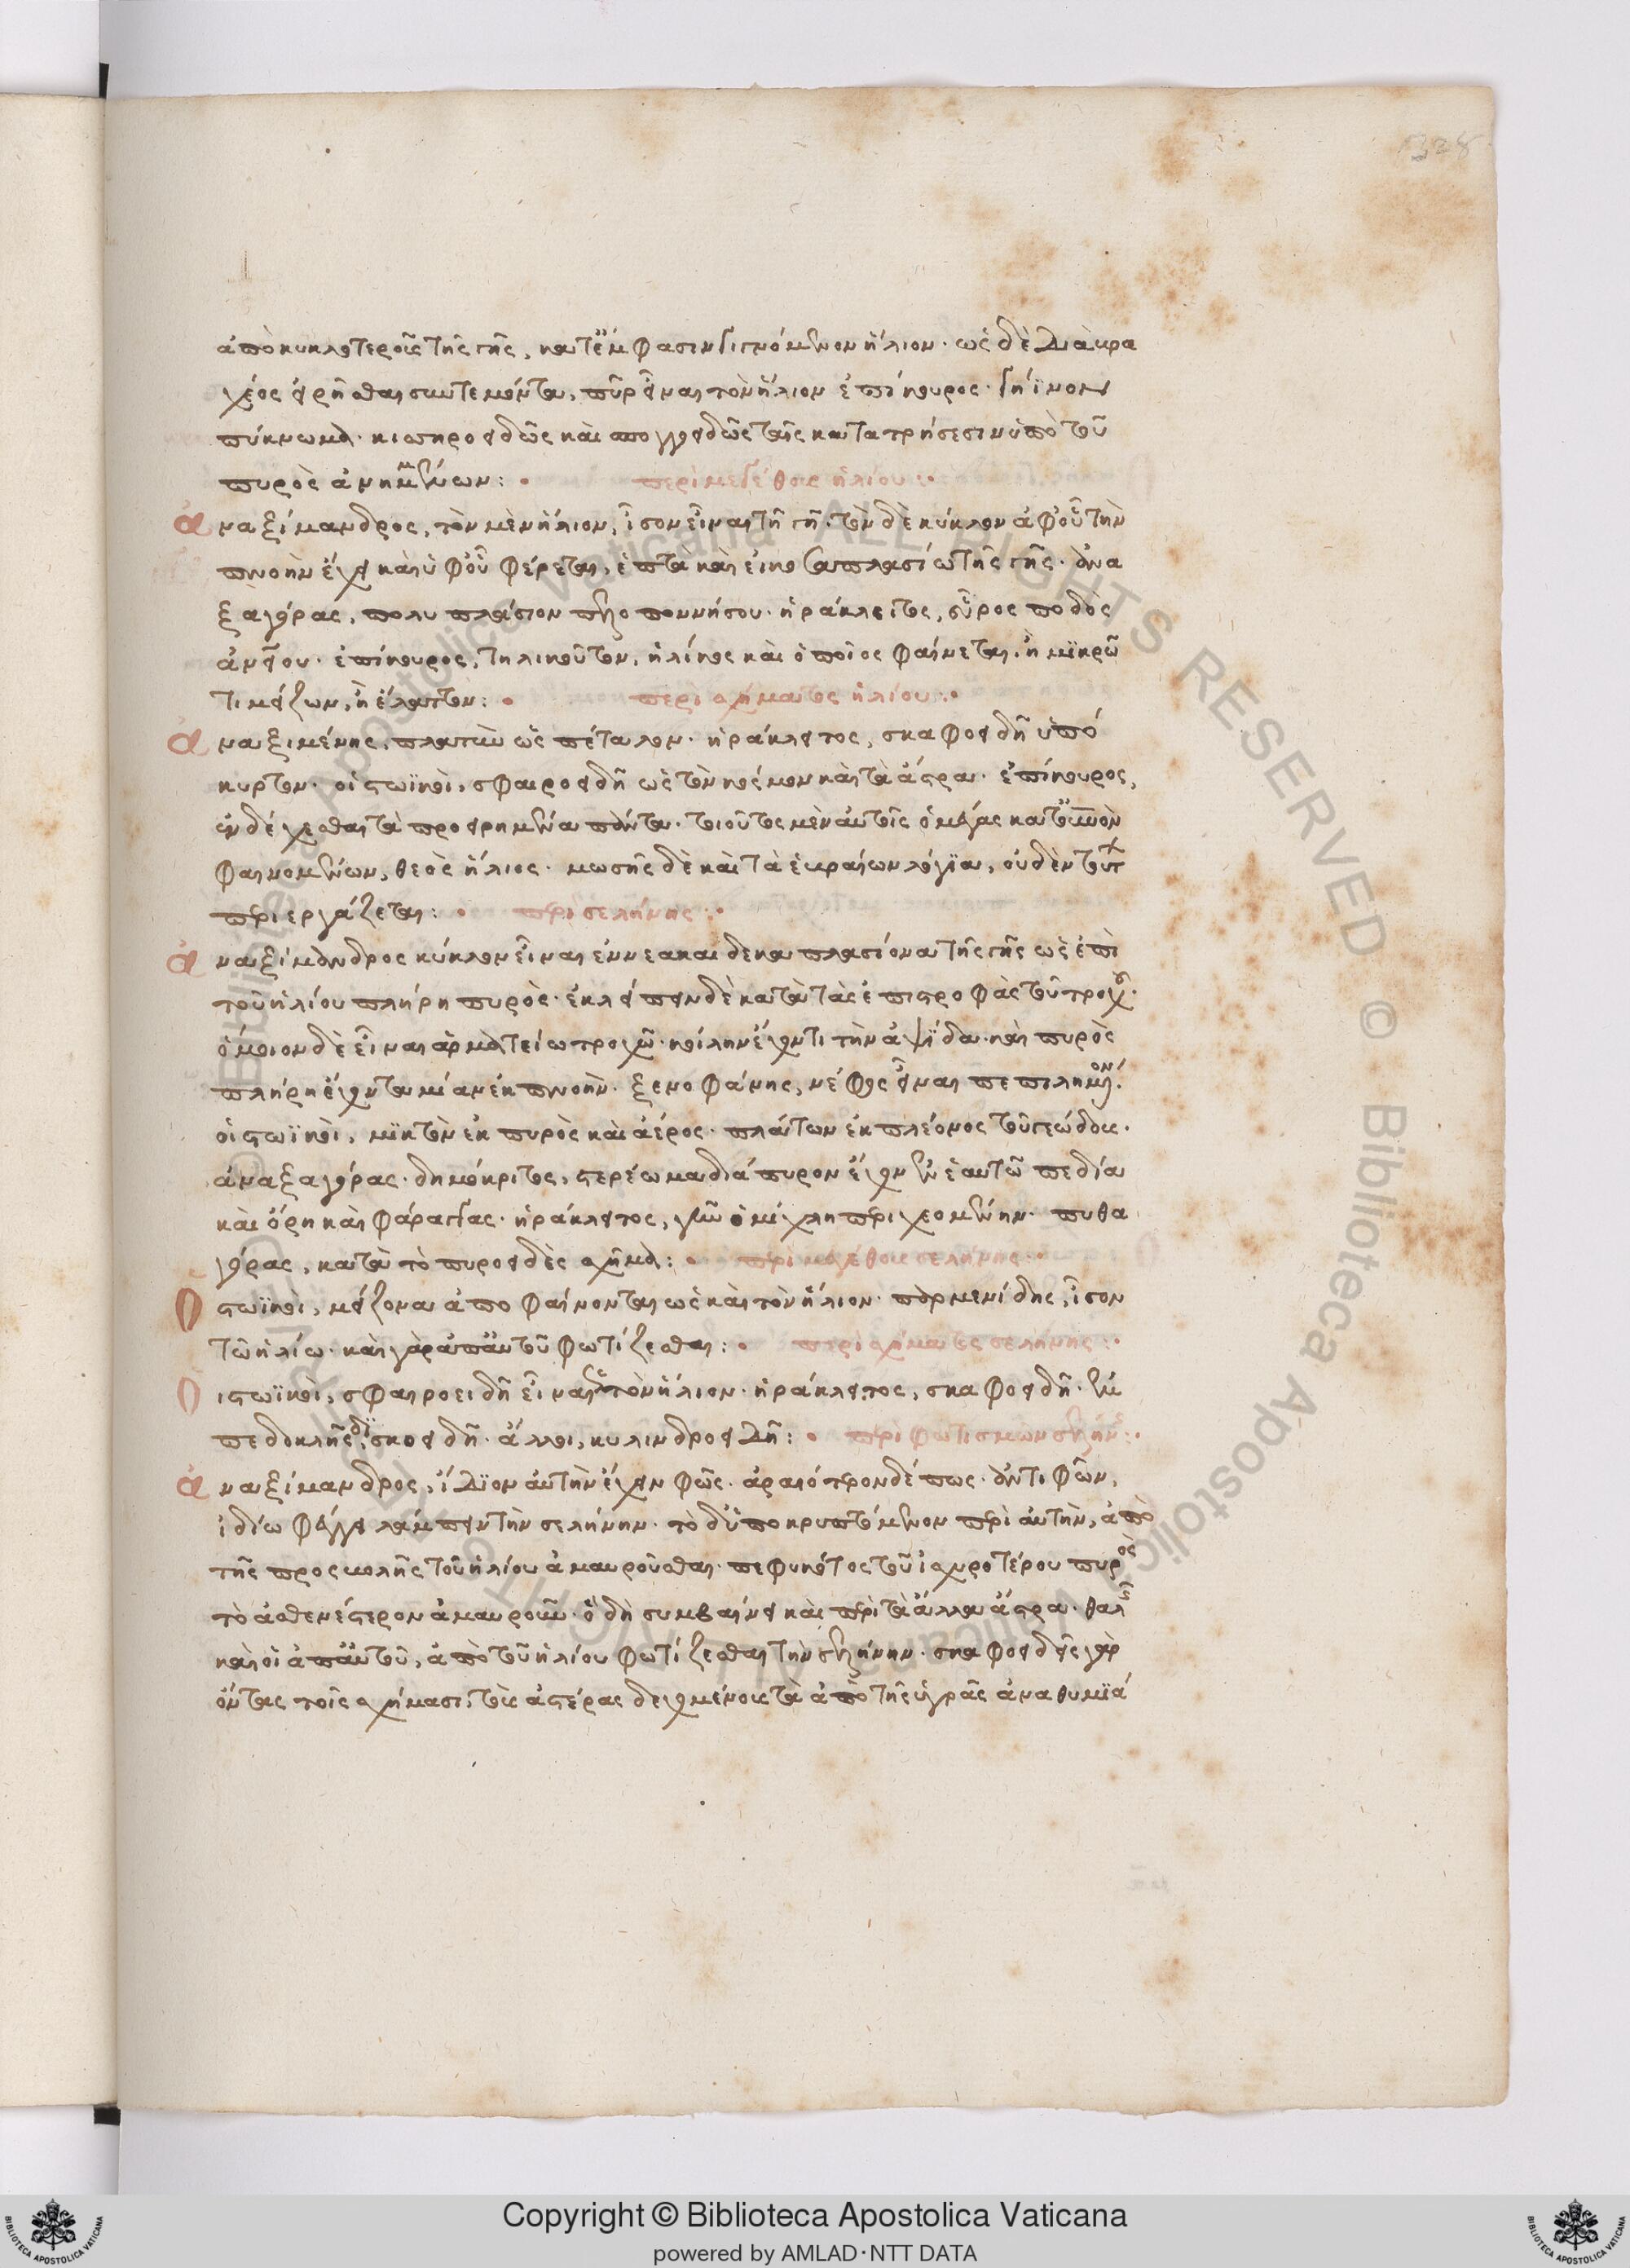 328
ἀπὸ κυκλοτεροῦς τῆς γῆς, κατ' ἔμφασιν γιγνόμενον ἥλιον· ὡς δὲ διὰ βρα
χέος εἰρῆσθαι συντεμόντα, πῦρ εἶναι τὸν ἥλιον ἐπίκουρος· γήϊνον
πύκνωμα· κισηροειδῶς καὶ σπογγοειδῶς ταῖς κατατρήσεσιν ὑπὸ τοῦ
πυρὸς ἀνημμένων: περὶ μεγέθους ἡλίου:
ἀναξίμανδρος, τὸν μὲν ἥλιον, ἶσον εἶναι τῆ γῆ· τὸν δὲ κύκλον ἀφ' οὗ τὴν
πνοὴν ἔχει καὶ ὑφ' οὗ φέρεται, ἑπτὰ καὶ εἰκοσαπλασίω τῆς γῆς· ἀνα
ξαγόρας, πολυπλάσιον πελοποννήσου· ἡράκλειτος, εὖρος ποδὸς
ἀνθρώπου· ἐπίκουρος, τηλικοῦτον, ἡλίκος καὶ ὁποῖος φαίνεται, ἢ μϊκρῶ
τι μείζων, ἢ ἐλάττων: περὶ σχήματος ἡλίου:
ἀναξιμένης, πλατὺν ὡς πέταλον· ἡράκλειτος, σκαφοειδῆ ὑπό
κυρτον· οἱ στωϊκοὶ, σφαιροειδῆ ὡς τὸν κόσμον καὶ τὰ ἄστρα· ἐπίκουρος,
ἐνδέχεσθαι τὰ προειρημένα πάντα· τιοῦτος μὲν αὐτοῖς ὁ μέγας κατ' οὐρανὸν
φαινομένων, θεὸς ἥλιος· μωσῆς δὲ καὶ τὰ ἑβραίων λόγϊα, οὐδὲν τούτ
περιεργάζεται: περὶ σελήνης:
ἀναξίμανδρος κύκλον εἶναι ἐννεακαιδεκαπλασίονα τῆς γῆς ὡς ἐπὶ
τοῦ ἡλίου πλήρη πυρὸς· ἐκλείπειν δὲ κατὰ τὰς ἐπιστροφὰς τοῦ τροχοῦ·
ὅμοιον δὲ εἶναι ἁρματείω τροχῶ· κοίλην ἔχοντι τὴν ἀψῖδα· καὶ πυρὸς
πλήρη ἔχοντα μίαν ἐκπνοήν· ξενοφάνης, νέφος εἶναι πεπιλημένον·
οἱ στωϊκοὶ, μϊκτὸν ἐκ πυρὸς καὶ ἀέρος· πλάτων ἐκ πλέονος τοῦ γεώδους·
ἀναξαγόρας· δημόκριτος, στερέωμα διάπυρον ἔχον ἐν ἑαυτῶ πεδία
καὶ ὄρη καὶ φάραγγας· ἡράκλειτος, γῆν ὁμίχλη περιεχομένην· πυθα
γόρας, κατὰ τὸ πυροειδὲς σχῆμα: περὶ μεγέθους σελήνης:
Οἱ στωϊκοὶ, μείζονα ἀποφαίνονται ὡς καὶ τὸν ἥλιον· παρμενίδης, ἶσον
τῶ ἡλίω· καὶ γὰρ ἀπ' αὐτοῦ φωτίζεσθαι: περὶ σχήματος σελήνης:
Οἱ στωϊκοὶ, σφαιροειδῆ εἶναι ὡς τὸν ἥλιον· ἡράκλειτος, σκαφοειδῆ· ἐμ
πεδοκλῆς, δϊσκοειδῆ· ἄλλοι, κυλινδροειδῆ: περὶ φωτισμῶν σελήνης:
ἀναξίμανδρος, ἴδϊον αὐτὴν ἔχειν φῶς· ἀραιότερον δέ πως· ἀντιφῶν,
ἰδίω φέγγει λάμπειν τὴν σελήνην· τὸ δ' ὑποκρυπτόμενον περὶ αὐτὴν, ἀπὸ
τῆς προσβολῆς τοῦ ἡλίου ἀμαυροῦσθαι· πεφυκότος τοῦ ἰσχυροτέρου πυρὸς
τὸ ἀσθενέστερον ἀμαυροῦν· ὃ δὴ συμβαίνει καὶ περὶ τὰ ἄλλα ἄστρα· θαλῆς
καὶ οἱ ἀπ' αὐτοῦ, ἀπὸ τοῦ ἡλίου φωτίζεσθαι τὴν σελήνην· σκαφοειδεῖς γὰρ
ὄντας τοῖς σχήμασι, τοὺς ἀστέρας δεχομένους τὰ ἀπὸ τῆς ὑγρᾶς ἀναθυμϊά
© Biblioteca Apostolica Vaticana ALL RIGHTS RESERVED © Biblioteca Apostolica Vaticana ALL RIGHTS RESERVED
BIBLIOTECA APOSTOLICA VATICANA
Copyright © Biblioteca Apostolica Vaticana
powered by AMLAD·NTT DATA
BIBLIOTECA APOSTOLICA VATICANA